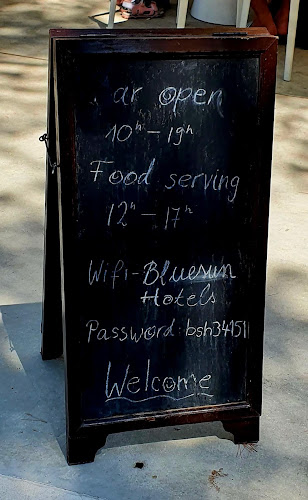 ar open
10h - 19h
Food serving
12h - 17h
Wifi - Bluesun
Hotels
Password: bsh341511
Welcome